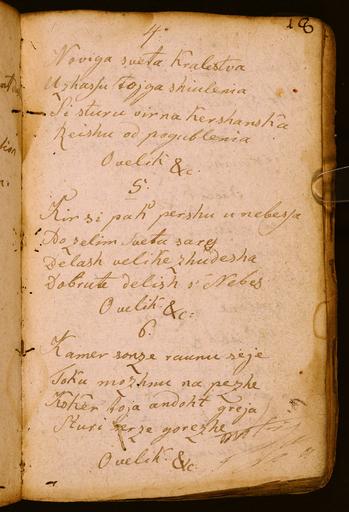 18
4.
Noviga sveta Kralestva
Uzhasu tojga shiulenia
Si sturu virna Kershanska
Reishu od pogublenia
O velik &c.
5.
Kir si pak pershu u nebesa
Do zelim svetu sarg
Delash velike zhudesha
Dobrute delish s' Nebes
O velik &c:
6.
Kamer sonze raunu seje
Toku mozhnu na pezhe
Koker toja andoht greja
Sturi serze gorezhe
O velik &c.